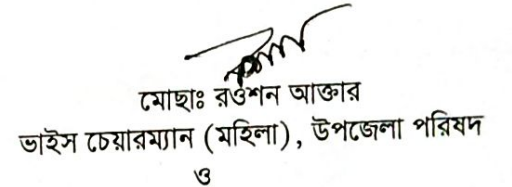 মোছাঃ রওশন আক্তার
ভাইস চেয়ারম্যান (মহিলা), উপজেলা পরিষদ
ও